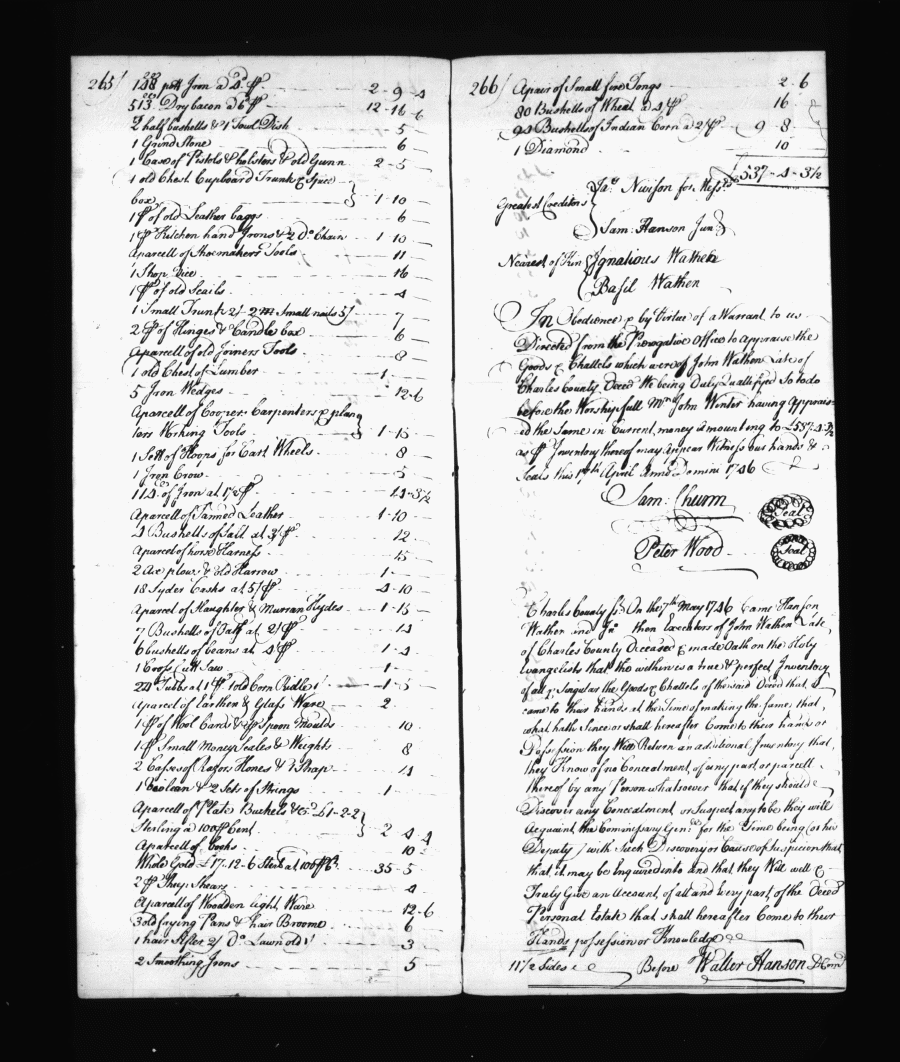 265/ 148 pott Iron a 4d ⅌ 2 - 9 - 4
513 Dry bacon a d6 ⅌ 12 - 16 - 6
2 half bushells & 1 Fowl Dish 5
1 Grind Stone 6
1 Case of Pistols & holsters & old Gunn 2 - 5
1 old Chest Cupboard Trunk & Spice
box 1 - 10
1 ⅌ of old Leather baggs 6
1 ⅌ Kitchen hand Irons & 2 Do Chain 1 - 10
A parcell of Shoemakers Tools 11
1 Shop Vice 16
1 ⅌ of old Scails 4
1 Small Trunk 2/ - 2 m Small nails 5/ 7
2 ⅌ of Hinges & Candle box 6
A parcell of old Joiners Tools 8
1 old Chest of Lumber 1
5 Iron Wedges 12 - 6
A parcell of Cooper Carpenters & plan
ters Working Tools 1 - 15
1 Sett of Hoops for Cart Wheels 8
1 Iron Crow 5
114 of Iron at 1½ ⅌ 14 - 3½
A parcell of Tanned Leather 1 - 10
4 Bushells of Salt at 3/ ⅌ 12
A parcel of horse Harness 15
2 Axe plows & old Harrow 1
18 Syder Casks at 5/ ⅌ 4 - 10
A parcel of Slaughter & Murran Hydes 1 - 15
7 Bushells of at 2/ ⅌ 14
6 bushells of beans at 4 ⅌ 1 - 4
1 Cross Cutt Saw 1
24 Tubbs at 1 ⅌ 1 old Corn Ridle 1/ 1 - 5
A parcel of Earthen & Glass Ware 2
1 ⅌ of Wool Cards & 1 ⅌ Spoon Moulds 10
1 ⅌ Small Money Scales & Weights 8
2 Cases of Razors Hones & 1 Strap 14
1 & 2 Sets of Strings 1
A parcell of Plate Buckels &c £1-2-2
Sterling a 100 ⅌ Cent 2 4 4
A parcell of books 10
Whole Gold £17-12-6 Sterl at 100 ⅌ Ct 35 - 5
2 ⅌ Sheep Shears 4
A parcell of Wooden light Ware 12 - 6
3 old fraying Pans & hair Broome 6
1 hair sifter 2/ Do Lawn old 1/ 3
2 Smoothing Irons 5
266/ A pair of Small fire Tongs 2 - 6
80 Bushells of Wheat a 4/ ⅌ 16
94 Bushells of Indian Corn a 2/ ⅌ 9 - 8
1 Diamond 10
£537 - 4 - 3½
Greatest Creditors
Jas Nivison for Messrs
Sam: Hanson Junr
Nearest of Kin
Ignatious Wathen
Basil Wathen
In Obedience & by Virtue of a Warrant to us
Directed from the Prerogative Office to Appraise the
Goods & Chattels which were of John Wathen Late of
Charles County Deced We being Duly Quallifyed So to do
before the Worshipfull Mr John Winter having Apprais-
ed the Same in Current money amounting to £537-4-3½
as ⅌ Inventory thereof may Appear Witness our hands &
Seals this 17th April Anno Domini 1746
Sam: Chunn Seal
Peter Wood Seal
Charles County Ss On the 7th May 1746 Came Hanson
Wathen and then Executors of John Wathen Late
of Charles County Deceased & made Oath on the Holy
Evangelists that the within is a true & perfect Inventory
of all & Singular the Goods & Chattels of the said Deced that
came to their hands at the Time of making the same that
what hath Since or shall hereafter Come to their hands or
Possession they Will Return in an additional Inventory that
they Know of no Concealment of any part or parcell
thereof by any Person whatsoever that if they should
Discover any Concealment or Suspect any to be they will
Acquaint the Commissary Genl for the Time being (or his
Deputy) with Such Discovery or Cause of Suspicion that
that it may be Inquired into and that they Will well &
Truly Give an Account of all and every part of the Deced
Personal Estate that shall hereafter Come to their
Hands possession or Knowledge
11½ Sides Before Walter Hanson D Com